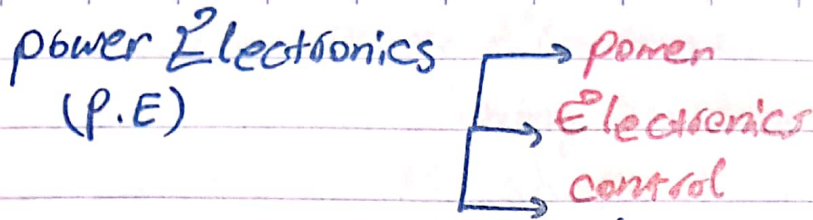 power Electronics
(P.E)
power
Electronics
control